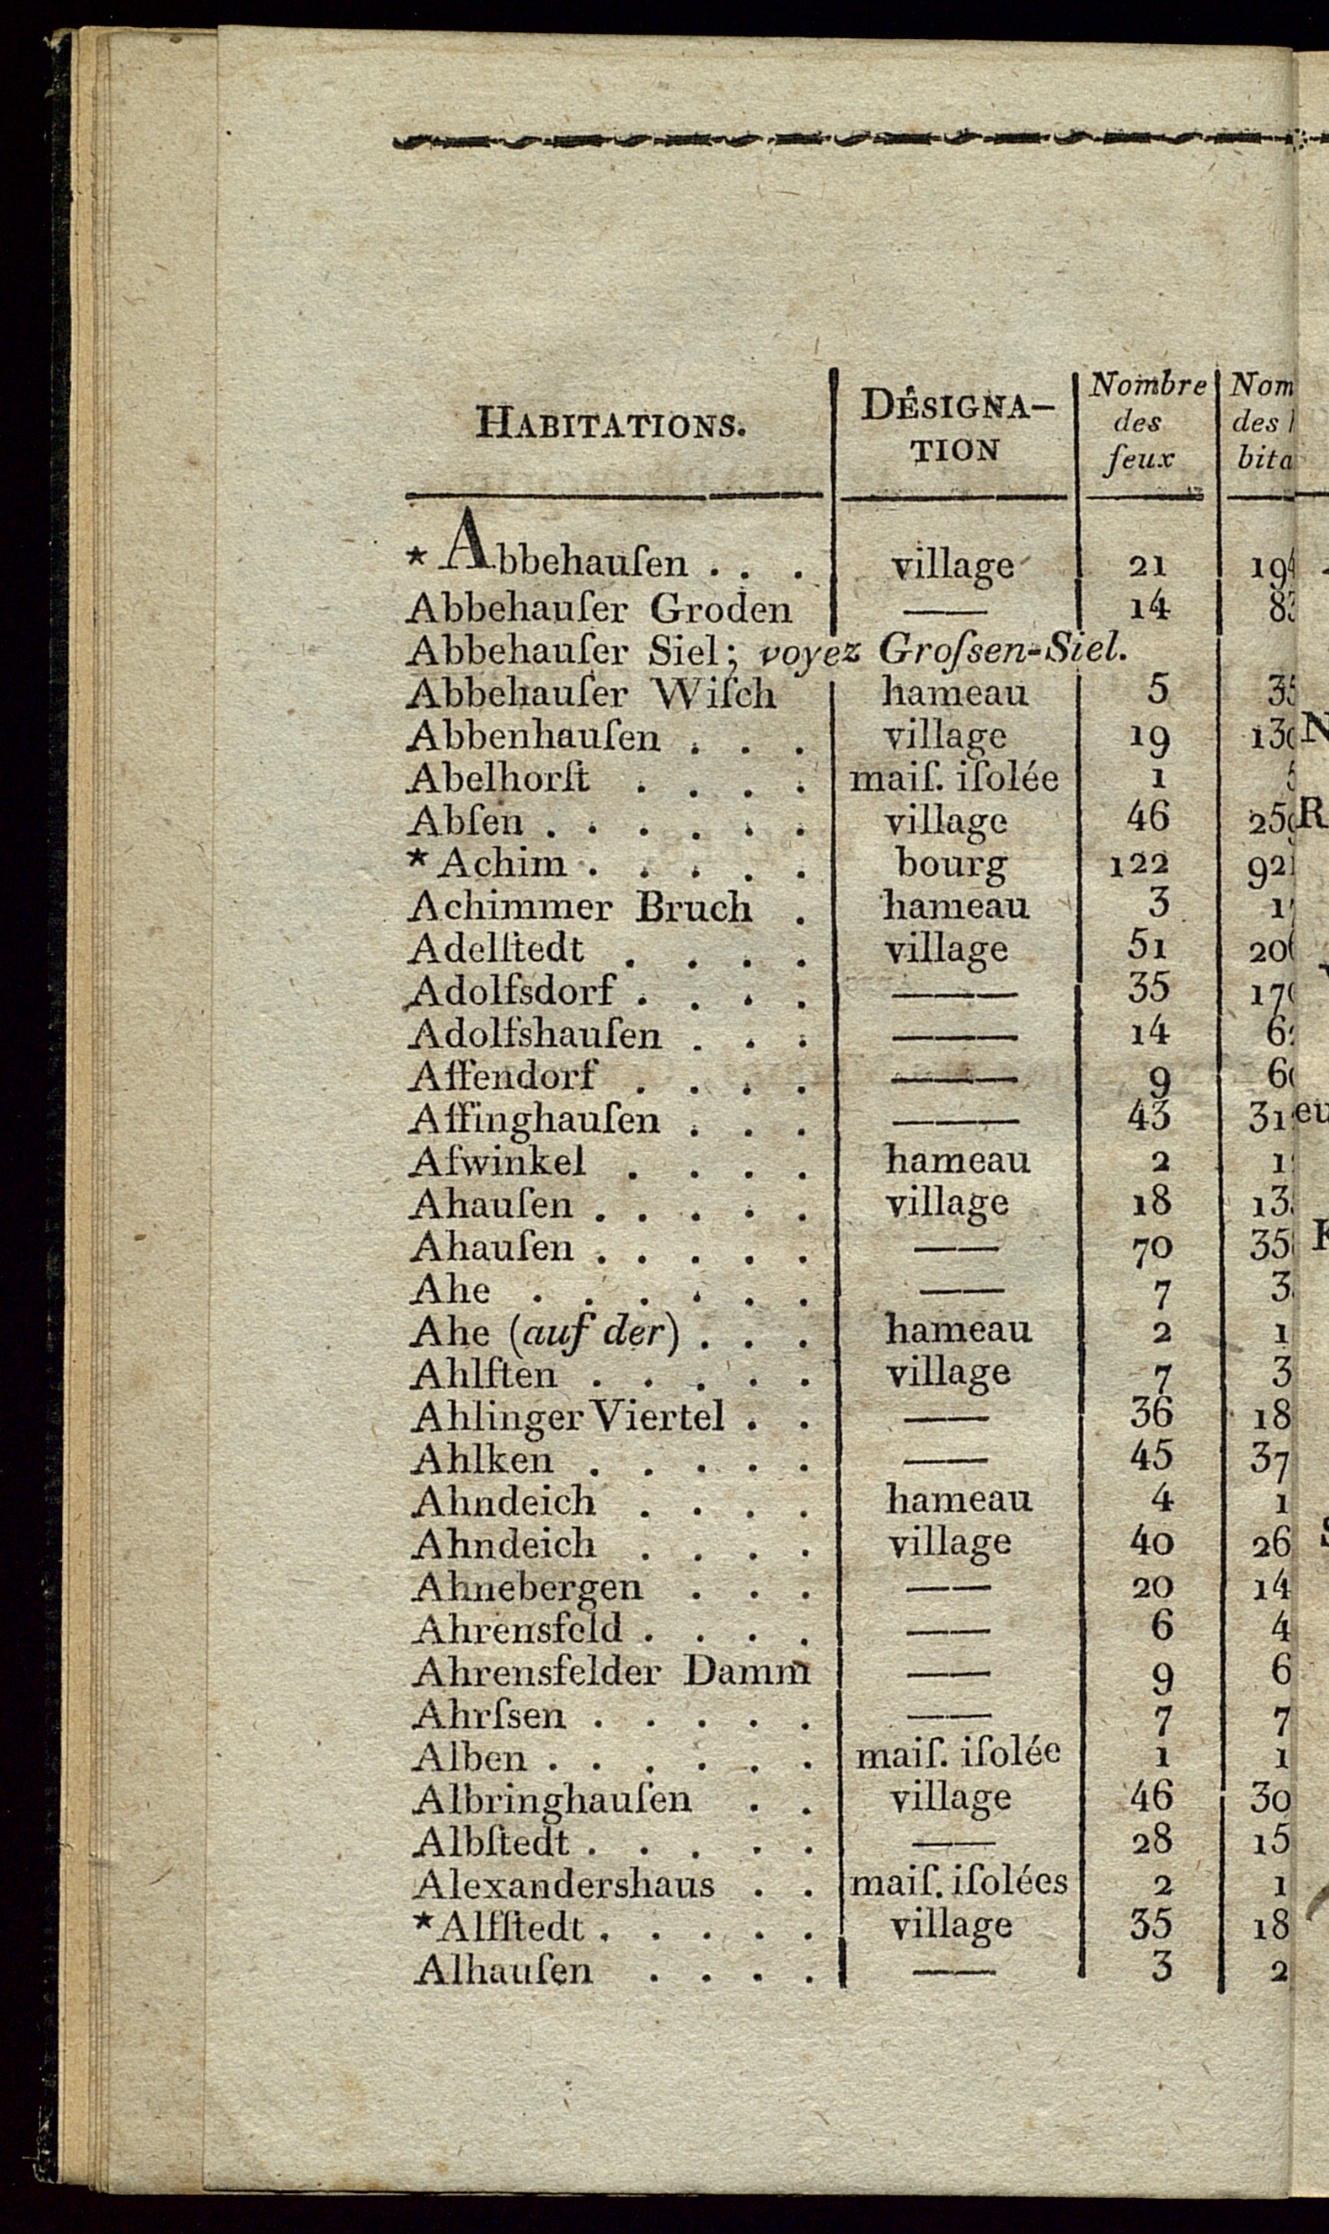 HABITATIONS. DÊSIGNA- Nombre Nom
TION des des
feux bita
*Abbehauſen . . . village 21 19
Abbehauſer Groden —— 14 8
Abbehauſer Siel; voyez Groſsen-Siel.
Abbehauſer Wiſch hameau 5 3
Abbenhauſen . . . village 19 13
Abelhorſt . . . . maiſ. iſolée 1
Abſen . . . . . . village 46 25
*Achim . . . . . bourg 122 92
Achimmer Bruch . hameau 3 1
Adelſtedt . . . . village 51 20
Adolfsdorf . . . . —— 35 17
Adolfshauſen . . . —— 14 6
Affendorf . . . . —— 9 6
Affinghauſen . . . —— 43 31
Afwinkel . . . . hameau 2 1
Ahauſen . . . . . village 18 13
Ahauſen . . . . . —— 70 35
Ahe . . . . . . —— 7 3
Ahe (auf der) . . . hameau 2 1
Ahlften . . . . . village 7 3
Ahlinger Viertel . . —— 36 18
Ahlken . . . . . —— 45 37
Ahndeich . . . . hameau 4 1
Ahndeich . . . . village 40 26
Ahnebergen . . . —— 20 14
Ahrensfeld . . . . —— 6 4
Ahrensfelder Damm —— 9 6
Ahrſsen . . . . . —— 7 7
Alben . . . . . . maiſ. iſolée 1 1
Albringhauſen . . village 46 30
Albſtedt . . . . . —— 28 15
Alexandershaus . . maiſ. iſolées 2 1
*Alfſtedt . . . . . village 35 18
Alhauſen . . . . —— 3 2